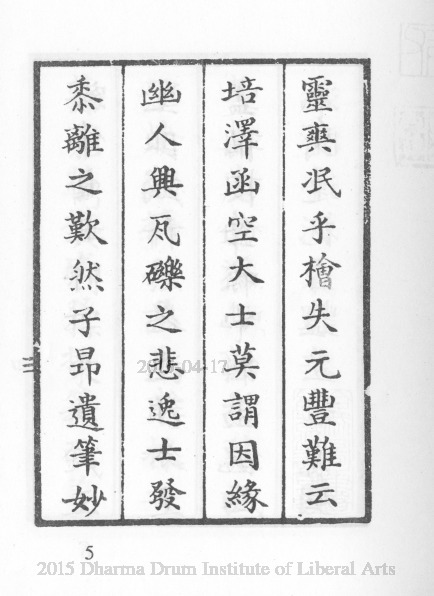 靈爽泯乎檜失元豐難云
培澤函空大士莫謂因緣
幽人興瓦礫之悲逸士發
黍離之歎然子昂遺筆妙
三
5
2015 Dharma Drum Institute of Liberal Arts